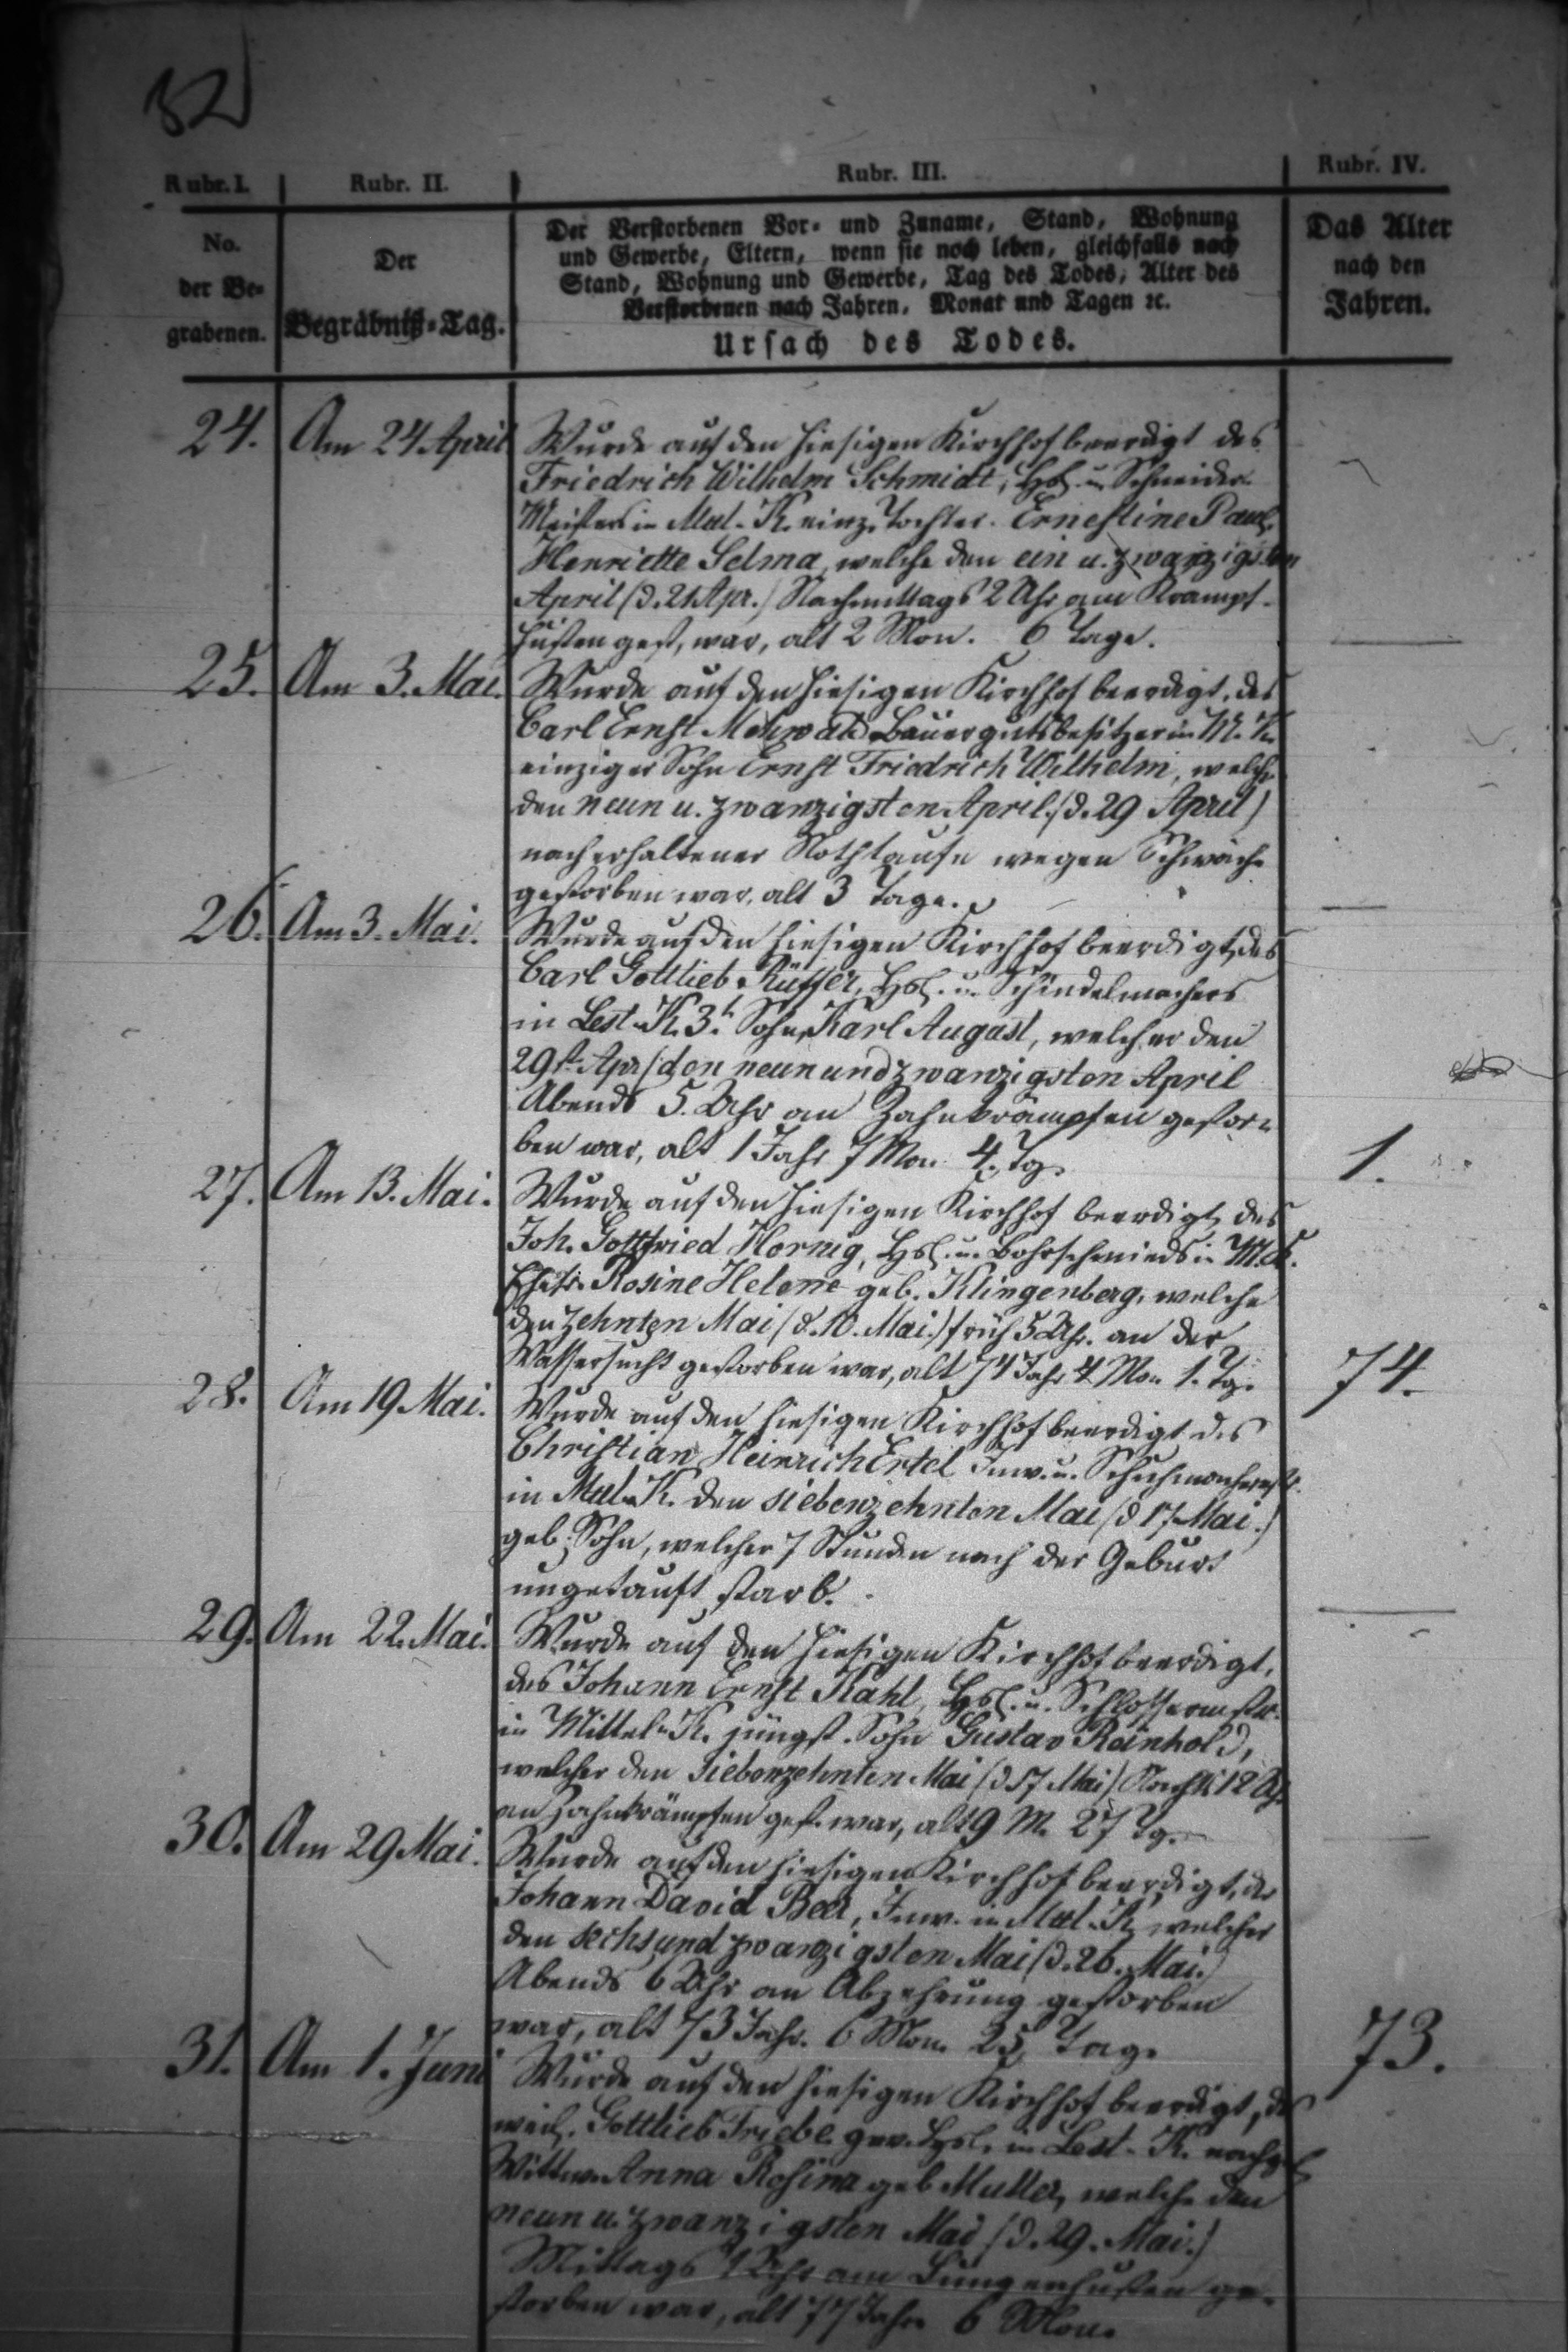 82
Rubr. I. Rubr. II. Rubr. III. Rubr. IV.
No. der Be- grabenen.
Der Begräbniß-Tag.
Der Verstorbenen Vor- und Zuname, Stand, Wohnung
und Gewerbe, Eltern, wenn sie noch leben, gleichfalls nach
Stand, Wohnung und Gewerbe, Tag des Todes, Alter des
Verstorbenen nach Jahren, Monat und Tagen ꝛc.
Ursach des Todes.
Das Alter nach den Jahren.
24. Am 24 April Wurde auf den hiesigen Kirchhof beerdigt des
Friedrich Wilhelm Schmidt, Hsl. u. Schneider
Meisters in Mtl-K. einz. Tochter Ernestine Paul.
Henriette Selma, welche den ein u. zwanzigsten
April (d. 21 Apr.) Nachmittags 2 Uhr am Krampf-
husten gest. war, alt 2 Mon. 6 Tage.
25. Am 3. Mai. Wurde auf den hiesigen Kirchhof beerdigt, des
Carl Ernst Mehwald Bauergutsbesitzer in M. K.
einziger Sohn Ernst Friedrich Wilhelm, welcher
den neun u. zwanzigsten April (d. 29 April)
nach erhaltener Nothtaufe wegen Schwäche
gestorben war, alt 3 Tage.
26. Am 3. Mai. Wurde auf den hiesigen Kirchhof beerdigt, des
Carl Gottlieb Rüffer, Hsl. u. Schindelmachers
in Lest-K. 3r. Sohn, Karl August, welcher den
29st. Apr (den neunundzwanzigsten April
Abends 5. Uhr an Zahnkrämpfen gestor-
ben war, alt 1 Jahr 7 Mon. 4. Tg. 1.
27. Am 13. Mai. Wurde auf den hiesigen Kirchhof beerdigt, des
Joh. Gottfried Hornig, Hsl. u. Bohrschmieds in M. K.
Ehefr. Rosine Helene geb. Klingenberg, welche
den zehnten Mai (d. 10. Mai.) früh 5 Uhr. an der
Wassersucht gestorben war, alt 74 Jahr 4 Mon 1. Tg. 74.
28. Am 19 Mai. Wurde auf den hiesigen Kirchhof beerdigt des
Christian Heinrich Ertel Inw. u. Schuhmachermstr.
in Mtl-K. den siebenzehnten Mai (d 17 Mai.)
geb. Sohn, welcher 7 Stunden nach der Geburt
ungetauft starb.
29. Am 22. Mai. Wurde auf den hiesigen Kirchhof beerdigt,
des Johann Ernst Kahl, Hsl. u. Schlossermstr.
in Mittel-K. jüngst. Sohn Gustav Reinhold,
welcher den siebenzehnten Mai (d 17 Mai) Nachts 12 Uhr
an Zahnkrämpfen gest. war, alt 9 M. 27 Tg.
30. Am 29 Mai. Wurde auf den hiesigen Kirchhof beerdigt, der
Johann David Beer, Inw. in Mtl-K. welcher
den sechsundzwanzigsten Mai (d. 26. Mai.)
Abends 6 Uhr an Abzehrung gestorben
war, alt 73 Jahr. 6 Mon. 25 Tag. 73.
31. Am 1. Juni Wurde auf den hiesigen Kirchhof beerdigt, des
weil. Gottlieb Friebe gew. Hsl. in Lest-K. nachgel
Wittwe Anna Rosina geb Muller, welche den
neun u. zwanzigsten Mai (d. 29. Mai.)
Mittags 1 Uhr am Lungenhusten ge-
storben war, alt 77 Jahr 6 Mon.